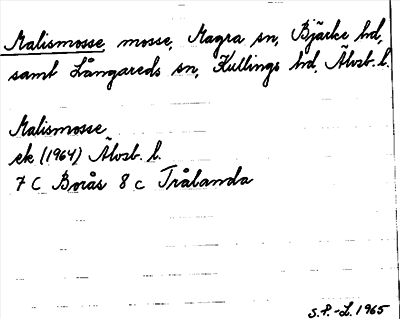 Malismosse, mosse, Magra sn, Bjärke hd,
samt Långareds sn, Kullings hd, Älvsb. l.
Malismosse
ek (1964) Älvsb. l.
7 C Borås 8 c Trålanda
S.P.-L. 1965